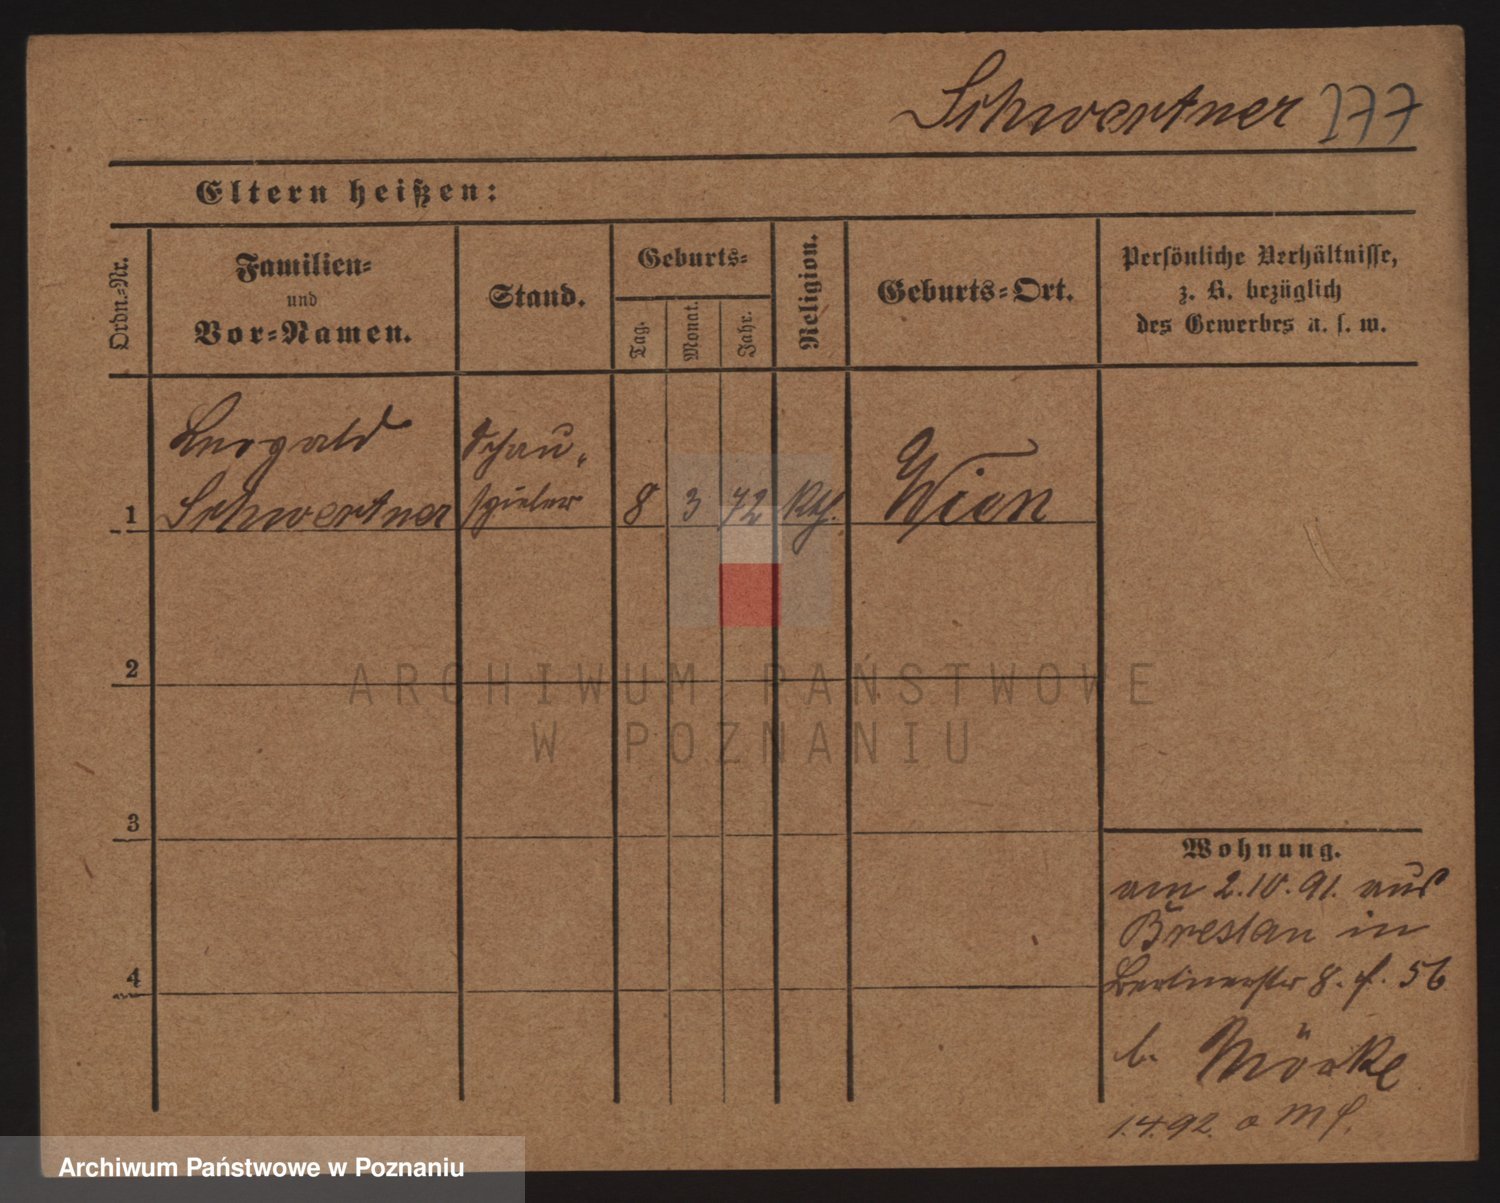 Schwertner 177
Eltern heißen:
Ordn.-Nr.
Familien-
und
Vor-Namen.
Stand.
Geburts-
Tag.
Monat.
Jahr.
Religion.
Geburts-Ort.
Persönliche Verhältnisse,
z. B. bezüglich
des Gewerbes u. s. w.
Leopold
Schau-
1 Schwertner spieler 8 3 72 Kth. Wien
2
ARCHIWUM PAŃSTWOWE
W POZNANIU
3
Wohnung.
am 2.10.91. aus
Breslau in
4
Berlinerstr 8. f. 56
b.
1.4.92.
Archiwum Państwowe w Poznaniu